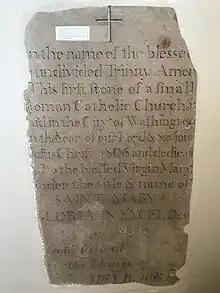 in the name of the blesse
undivided Trinity Amen
This first stone of a small
Roman Catholic Church is
laid in the City of Washington
in the Year of our Lord & Saviour
Jesus Christ 1806 and dedica
to the blessed Virgin Mary
under the title & name of
SAINT MARY
GLORIA IN EXCEL Deo
the Church of